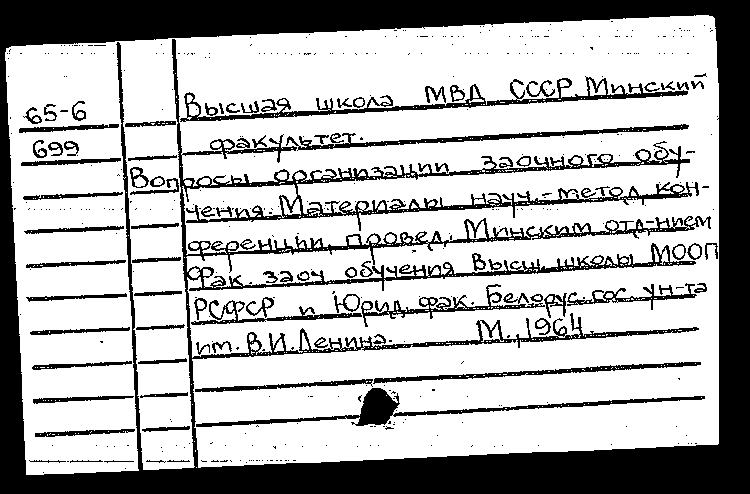 65-6 Высшая школа МВД СССР. Минский
699 факультет.
Вопросы организации заочного обу-
чения. Материалы науч.-метод. кон-
ференции, провед. Минским отд-нием
Фак. заоч. обучения Высш. школы МООП
РСФСР и Юрид. фак. Белорус. гос. ун-та
им. В.И. Ленина. М., 1964.